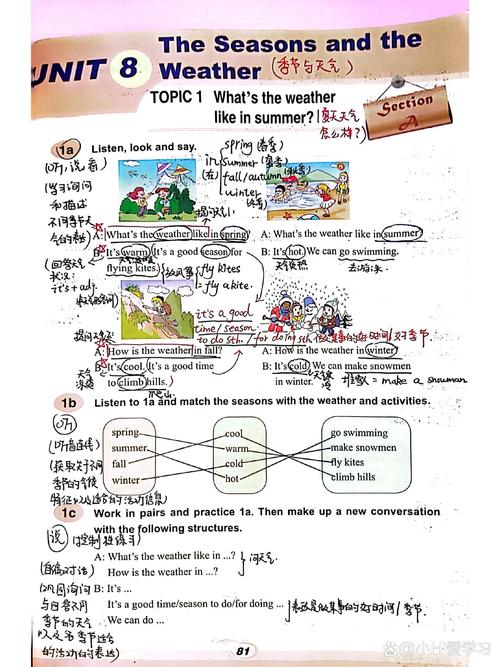 UNIT 8 The Seasons and the
Weather (季节与天气)
TOPIC 1 What's the weather
like in summer? (夏天天气
怎么样?)
Section
A
1a Listen, look and say.
(听,说,看)
spring (春季)
in summer (夏季)
(在) fall/autumn (秋季)
winter (冬季)
A: What's the weather like in spring?
B: It's warm. It's a good season for
flying kites.
放风筝
fly kites
= fly a kite.
A: What's the weather like in summer?
B: It's hot. We can go swimming.
天气炎热
去游泳
(回答天气
状况:
it's + adj.
it's a good
time / season
to do sth. / for doing sth. 做某事的好时间/好季节.
A: How is the weather in fall?
B: It's cool. It's a good time
to climb hills.
爬山
A: How is the weather in winter?
B: It's cold. We can make snowmen
in winter.
堆雪人 = make a snowman
1b Listen to 1a and match the seasons with the weather and activities.
(听)
(听音连线)
(获取关于不同
季节的气候
特征以及适合的活动信息)
spring cool go swimming
summer warm make snowmen
fall cold fly kites
winter hot climb hills
1c Work in pairs and practice 1a. Then make up a new conversation
with the following structures.
(说)
A: What's the weather like in ...?
How is the weather in ...?
问天气.
B: It's ...
It's a good time/season to do/for doing ...
表达是做某事的好时间/季节.
We can do ...
(自编对话)
(巩固询问
与回答不同
季节的天气
以及各季节适合
的活动的表达)
81
小口爱学习